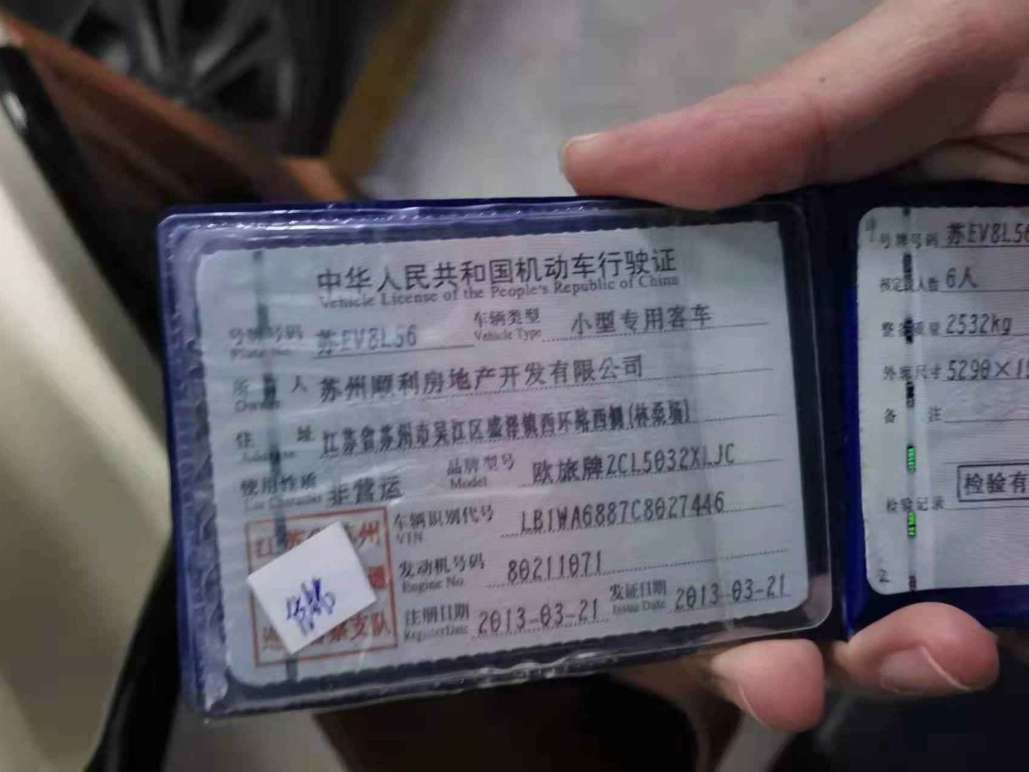 中华人民共和国机动车行驶证
Vehicle License of the People's Republic of China
号牌号码 苏EV8L56 车辆类型 小型专用客车
Plate No. Vehicle Type
所 人 苏州顺利房地产开发有限公司
Owner
住 址 江苏省苏州市吴江区盛泽镇西环路西侧(林桑场)
Address
使用性质 非营运 品牌型号 欧旅牌ZCL5032XLJC
Use Character Model
车辆识别代号 LB1WA6887C8027446
VIN
发动机号码 80211071
Engine No.
注册日期 2013-03-21 发证日期 2013-03-21
Register Date Issue Date
江 州
支队
号牌号码 苏EV8L56
核定 人数 6人
整 质量 2532kg
外廓尺寸 5290×1
备 注
检验有
检验记录
2